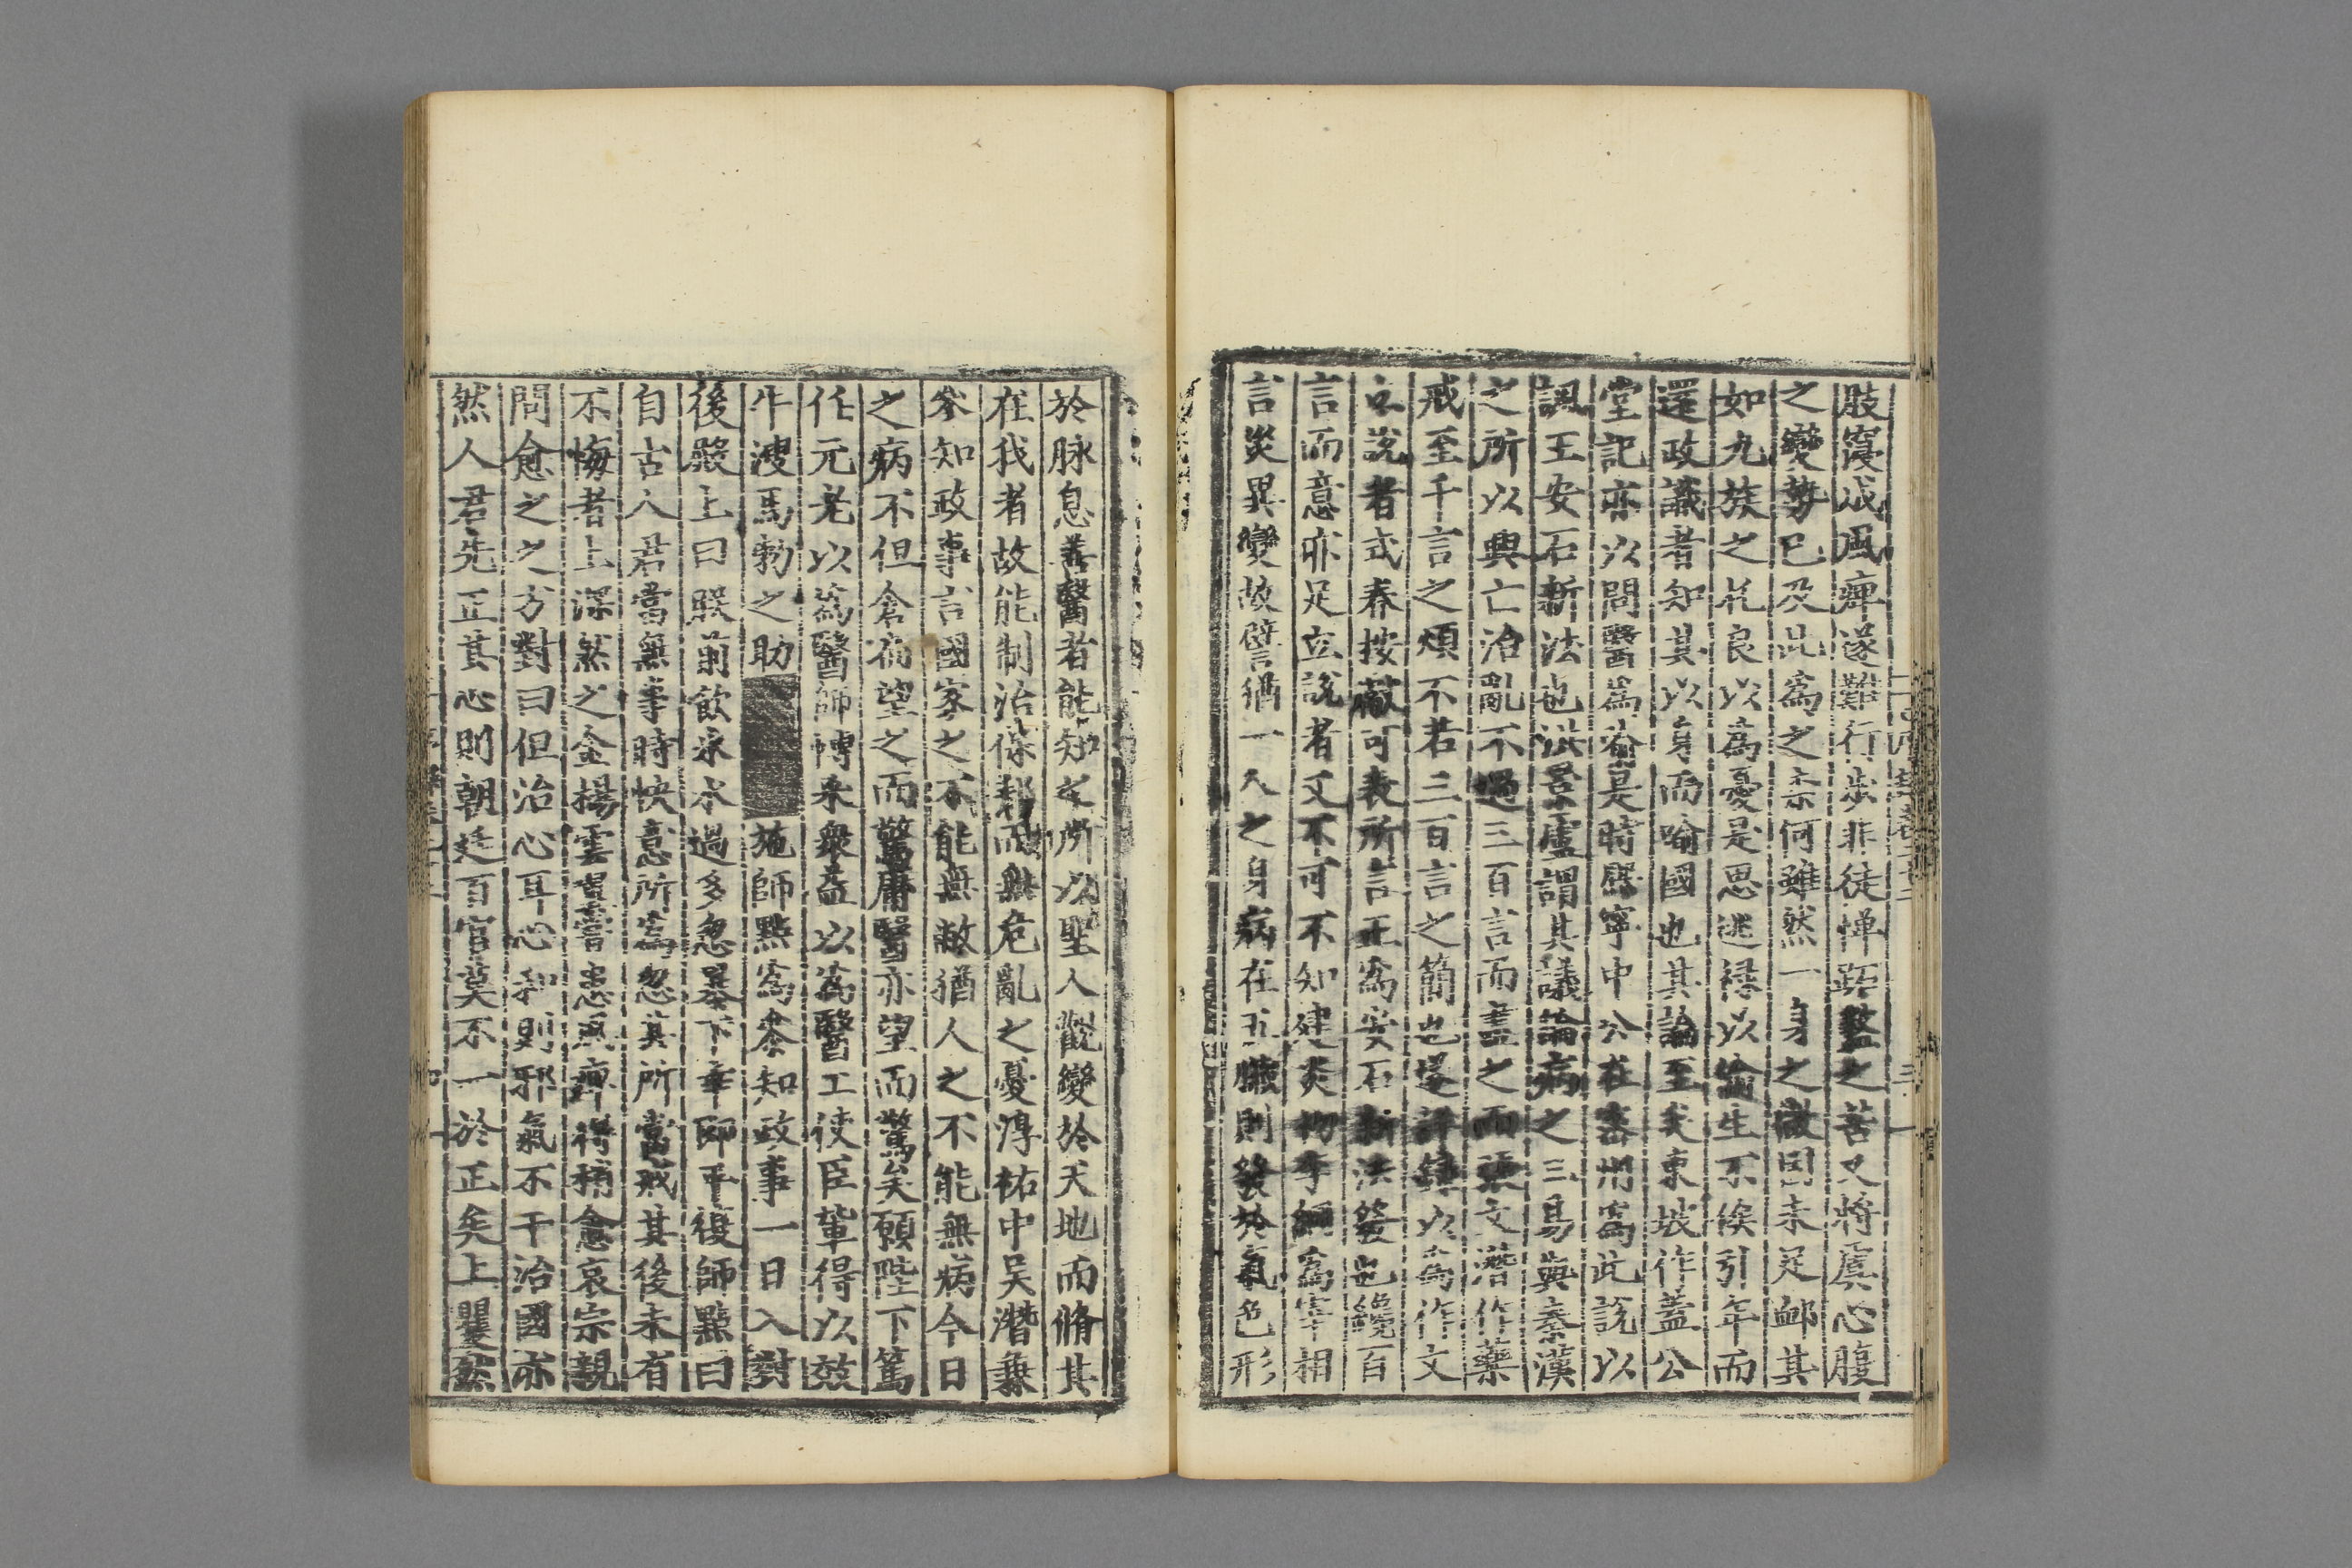 肢寖成風痺遂難行步非徒憚跖盭之苦又將虞心腹
之變勢已及此爲之柰何雖然一身之微固未足䘏其
如九族之托良以爲憂是思逃祿以偷生不俟引年而
還政議者知其以身而喻國也其論至矣東坡作蓋公
堂記亦以問醫爲喻是時熙寧中公在密州爲此說以
諷王安石新法也洪景盧謂其議論病之三易與秦漢
之所以興亡治亂不過三百言而盡之而張文潛作藥
戒至千言之煩不若三百言之簡也遂詳錄以爲作文
立說者式春按藏可表所言正爲安石新法發也纔百
言而意亦足立說者又不可不知建炎初李綱爲宰相
言災異變故譬猶一人之身病在五臓則發於氣色形
於脉息善醫者能知之所以聖人觀變於天地而脩其
在我者故能制治保邦而無危亂之憂淳祐中吴潛兼
叅知政事言國家之不能無敝猶人之不能無病今日
之病不但倉扁望之而驚庸醫亦望而驚矣願陛下篤
任元老以爲醫師愽采衆益以爲醫工使臣軰得以效
牛溲馬勃之助施師點爲叅知政事一日入對
後殿上曰朕前飲氷水過多忽暴下幸即平復師點曰
自古人君當無事時快意所爲忽其所當戒其後未有
不悔者上深然之金揚雲翼嘗患風痺得稍愈哀宗親
問愈之之方對曰但治心耳心和則邪氣不干治國亦
然人君先正其心則朝廷百官莫不一於正矣上矍然